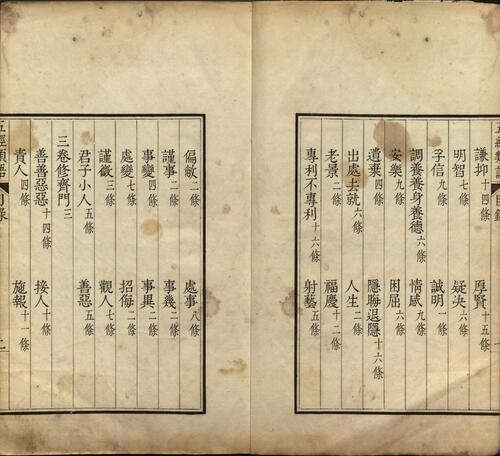 五經類語 目錄
謙抑十四條 厚賢十五條
明智七條 疑決六條
孚信九條 誠明一條
安樂九條 情感九條
調養養身養德六條 困屈六條
遺棄四條 隱聯退隱十六條
出處去就六條 人生二條
老景二條 福慶十二條
專利不專利十六條 射藝五條
偏敝二條 處事八條
謹事二條 事幾二條
事變四條 事異二條
處變七條 招侮二條
謹微三條 觀人七條
君子小人五條 善惡五條
三卷修齊門三
善善惡惡十四條 接人十條
責人四條 施報十一條
五經類語 目錄 二